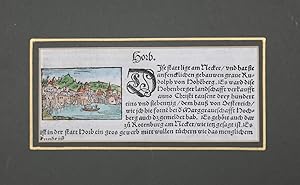 Horb.
Ise statt ligt am Necker / vnd hat sie
anfencklichen gebauwen graue Ru-
dolph von Hohberg. Es ward dise
Hohenberger landschafft verkaufft
anno Christi tausent drey hundert
eins vnd siebentzig / dem hauß von Oesterreich /
wie ich hie fornē bey d Marggrauschafft Hoch-
berg auch dz gemeldet hab. Es gehört auch dar
zů Rotenburg am Necker / wie ietz gesagt ist. Es
ist in der statt Horb ein gros gewerb mitt wullen tüchern wie das menglichem